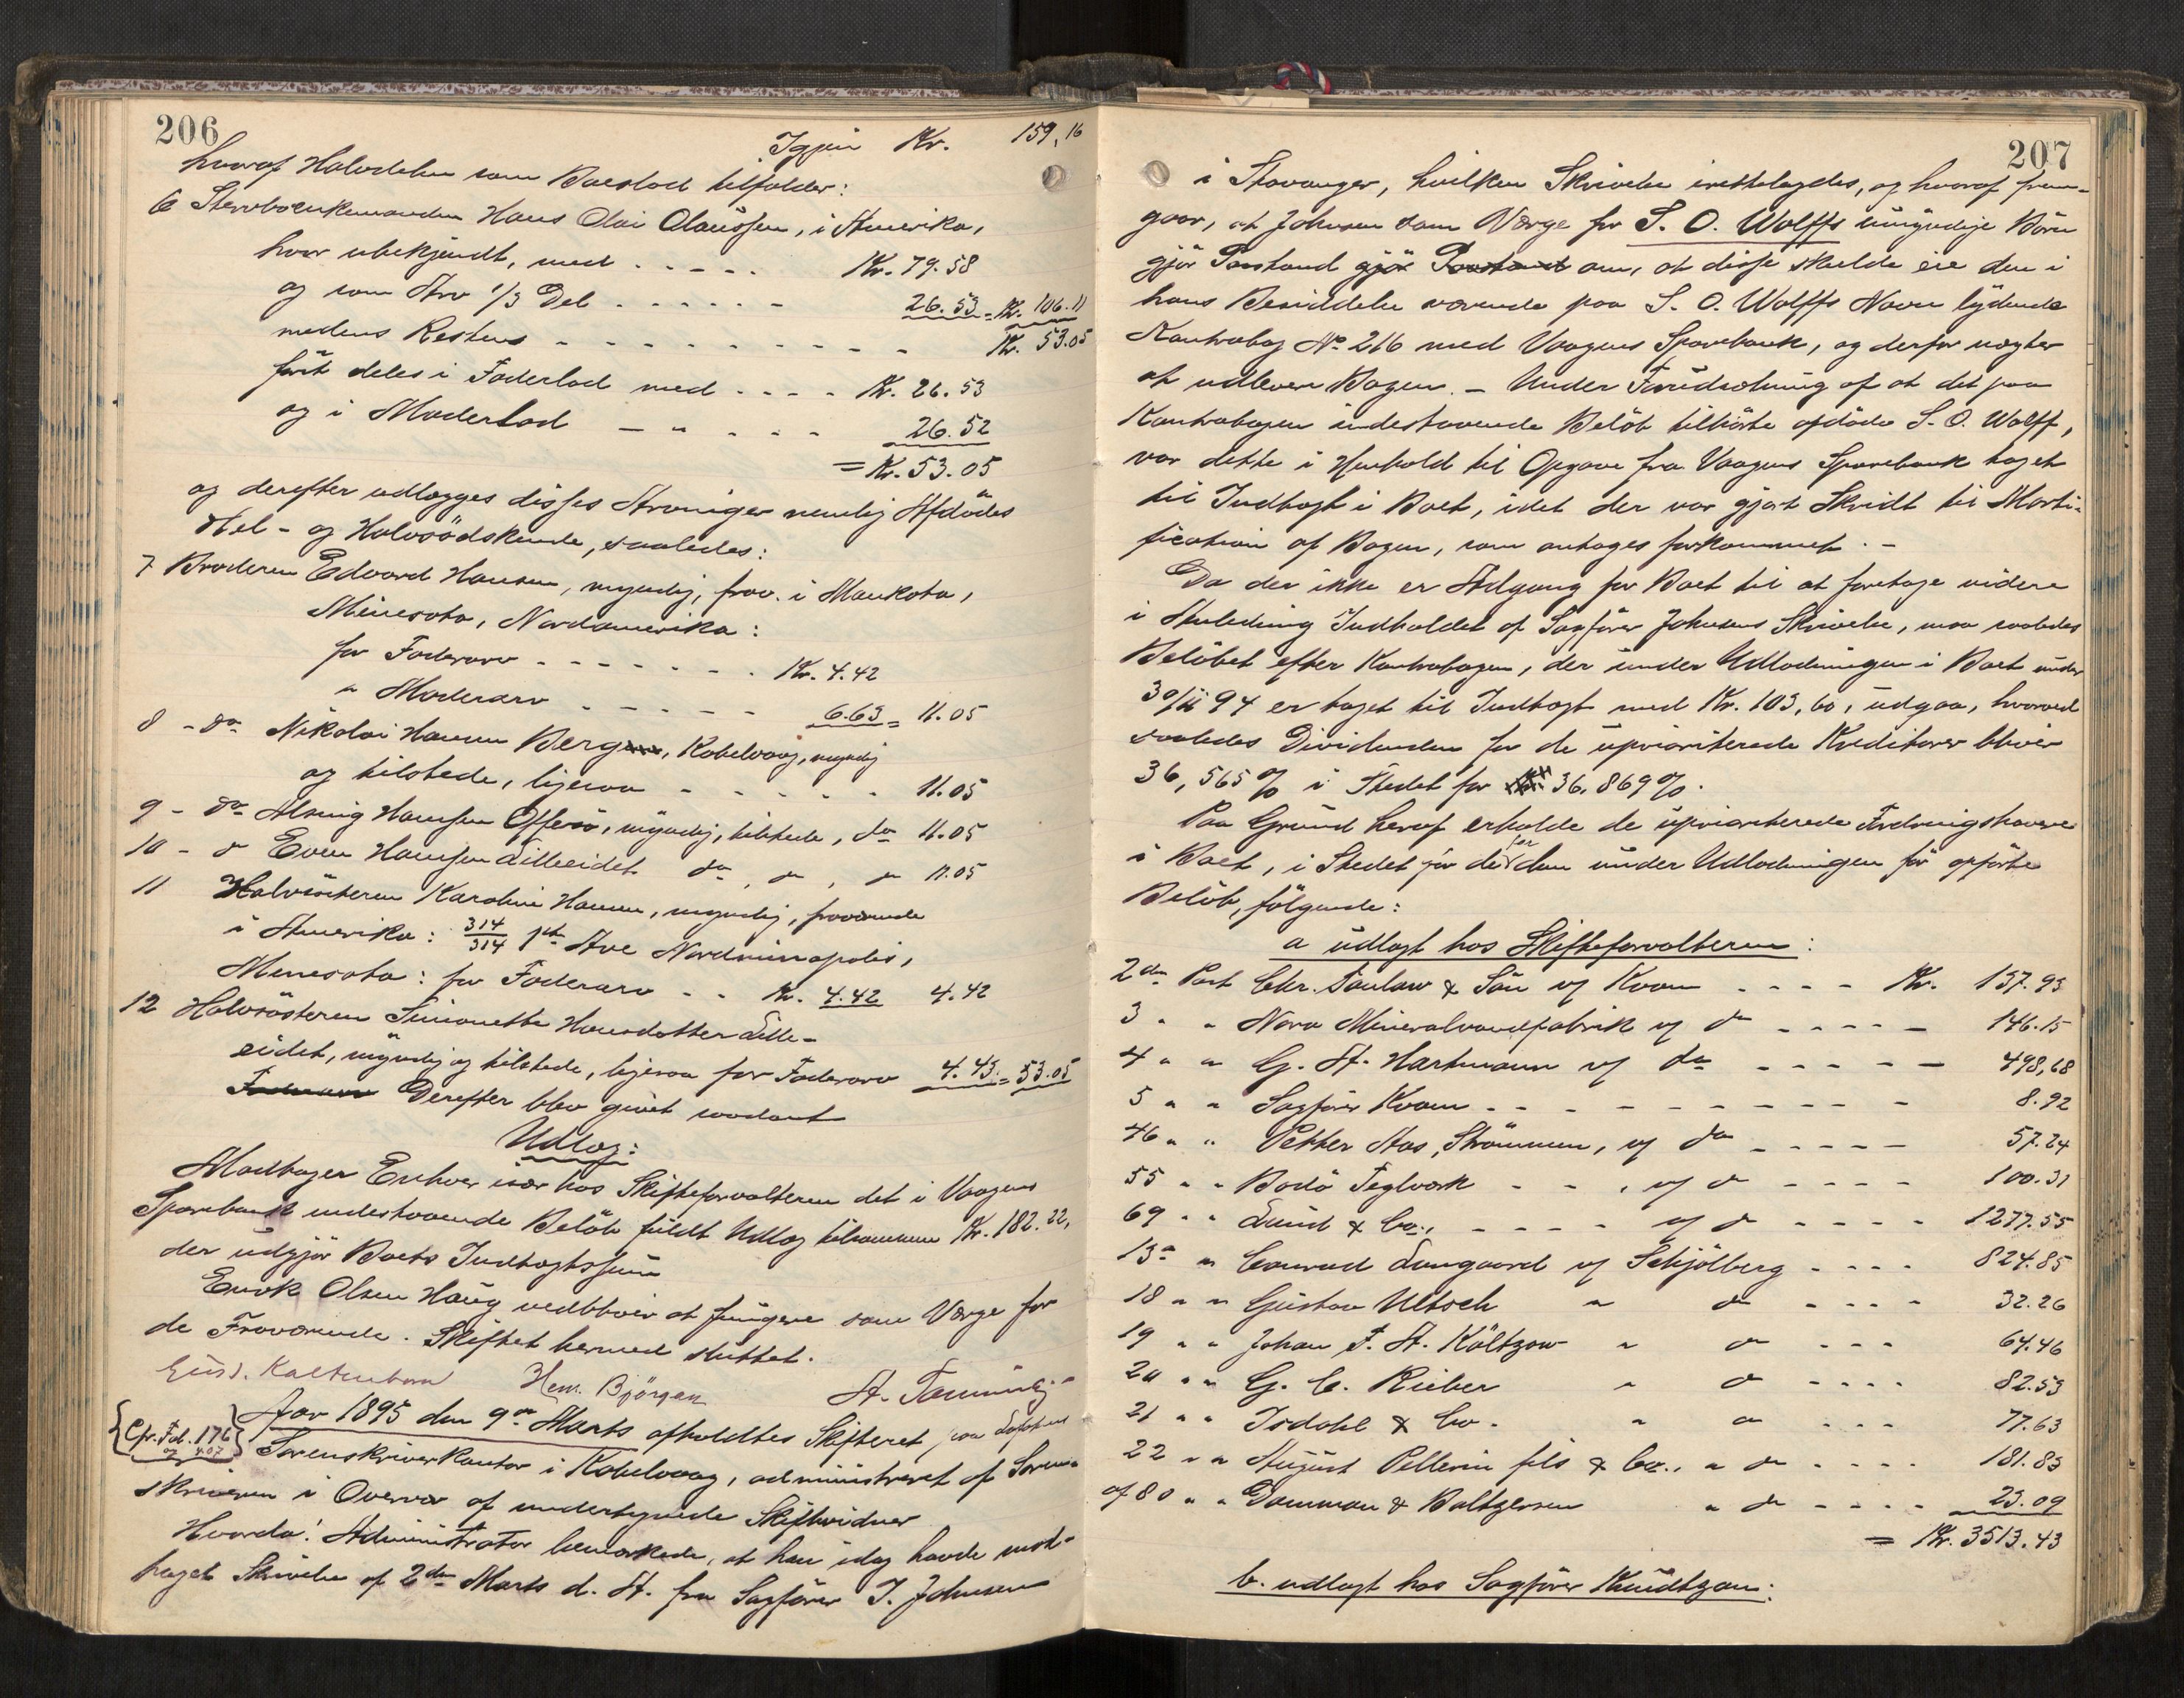 206
Igjen Kr. 159,16
hvoraf Halvdelen som Boeslod tilfalder:
6 Stervboenkemanden Hans Olai Olaussen, i Amerika,
hvor ubekjendt, med - - - - - Kr. 79.58
og som Arv 1/3 Del - - - - - - 26.53 = Kr. 106.11
medens Resten - - - - - - - - - Kr. 53.05
först deles i Faderlod med - - - - Kr. 26.53
og i Moderlod - - - - - 26.52
= Kr. 53.05
og derefter udlægges disses Arvinger nemlig Afdödes
Hel- og Halvsödskende, saaledes:
7 Broderen Edvard Hansen, myndig, frav. i Mankota,
Minesota, Nordamerika:
for Faderarv - - - - - - - Kr. 4.42
" Moderarv - - - - - 6.63 = 11.05
8 - do Nikolai Hansen Berg, Kabelvaag, myndig
og tilstede, ligesaa - - - - - 11.05
9 - do Alming Hansen Offersö, myndig, tilstede, do 11.05
10 - do Even Hansen Lilleeidet do, do, do 11.05
11 Halvsösteren Karoline Hansen, myndig, fraværende
i Amerika: 314/314 1st Ave Nordminapolis,
Minesota: for Faderarv - - Kr. 4.42 4.42
12 Halvsösteren Simonette Hansdatter Lille-
eidet, myndig og tilstede, ligesaa for Faderarv 4.43 = 53.05
Faderarv Derefter blev givet saadant
Udlæg:
Modtager Enhver især hos Skifteforvalteren det i Vaagens
Sparebank indestaaende Belöb fuldt Udlæg tilsammen Kr. 182.22,
der udgjör Boets Indtægtssum
Enok Olsen Haug vedbliver at fungere som Værge for
de Fraværende. Skiftet hermed sluttet.
Gust. Kaltenborn Henr. Björgan A.
{Cfr. Fol. 176 og 407} Aar 1895 den 9de Marts afholdtes Skifteret paa Lofotens
Sorenskriverkontor i Kabelvaag, administreret af Soren-
skriveren i Overvær af undertegnede Skiftevidner
Hvorda: Administrator bemærkede, at han idag havde mod-
taget Skrivelse af 2den Marts d. A. fra Sagförer J. Johnsen
207
i Stavanger, hvilken Skrivelse irettelagdes, og hvoraf frem-
gaar, at Johnsen som Værge for S. O. Wolffs umyndige Börn
gjör Paastand gjör Paastand om, at disse skulde eie den i
hans Besiddelse værende paa S. O. Wolffs Navn lydende
Kontrabog No 216 med Vaagens Sparebank, og derfor nægter
at udlevere Bogen. - Under Forudsætning af at det paa
Kontrabogen indestaaende Belöb tilhörte afdöde S. O. Wolff,
var dette i Henhold til Opgave fra Vaagens Sparebank taget
til Indtægt i Boet, idet der var gjort Skridt til Morti-
fication af Bogen, som antoges forkommet. -
Da der ikke er Adgang for Boet til at foretage videre
i Anledning Indholdet af Sagförer Johnsens Skrivelse, maa saaledes
Belöbet efter Kontrabogen, der under Udlodningen i Boet under
30/11 94 er taget til Indtægt med Kr. 103,60, udgaa, hvorved
saaledes Dividenden for de upriorterede Kreditorer bliver
36,565 % i Stedet for 36,869 %.
Paa Grund heraf erholde de uprioriterede Fordringshavere
i Boet, i Stedet for de for dem under Udlodningen för opförte
Belöb, följende:
a udlagt hos Skifteforvalteren:
2den Post Chr. Faulaw & Sön vf Kvam - - - - Kr. 137.93
3 " " Nora Mineralvandfabrik vf do - - - - - 146.15
4 " " G. A. Hartmann vf do - - - - - 498,68
5 " " Sagförer Kvam - - - - - - - - - - 8.92
46 " " Petter Aas, Strömmen, vf do - - - - - 57.24
55 " " Bodö Teglværk - - , vf do - - - - 100.31
69 " " Lund & Co., - - - - vf do - - - - 1277.55
13de " Conrad Langaard vf Schjölberg - - - - 824.85
18 " " Gustav Ultsch " do - - - - 32.26
19 " " Johan F. A. Költzow " do - - - 64.46
20 " " G. C. Rieber " do - - - - 82.53
21 " " Isdahl & Co. " do - - - 77.63
22 " " August Pellerin fils & Co., " do - - - - 181.83
af 80 " " Damman & Baltzersen " do - - - - 23.09
= Kr. 3513.43
b. udlagt hos Sagförer Knudtzon: